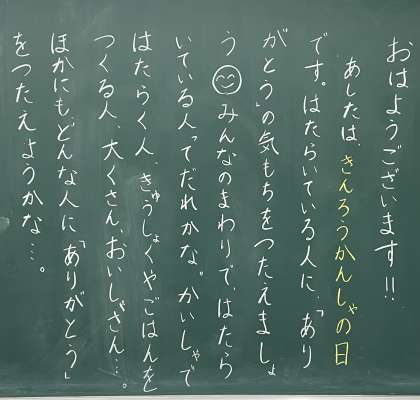 おはようございます!!
あしたは、きんろうかんしゃの日
です。はたらいている人に、「あり
がとう」の気もちをつたえましょ
う😊みんなのまわりで、はたら
いている人ってだれかな。かいしゃで
はたらく人、きゅうしょくやごはんを
つくる人、大くさん、おいしゃさん…。
ほかにも、どんな人に「ありがとう」
をつたえようかな…。